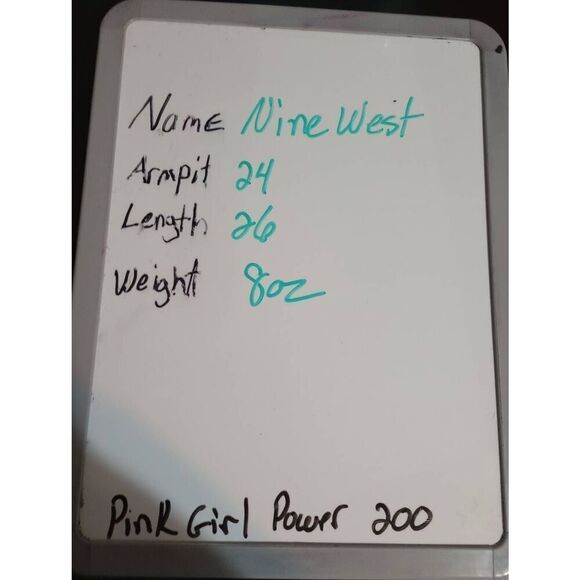 Name Nine West
Armpit 24
Length 26
Weight 8oz
Pink Girl Power 200